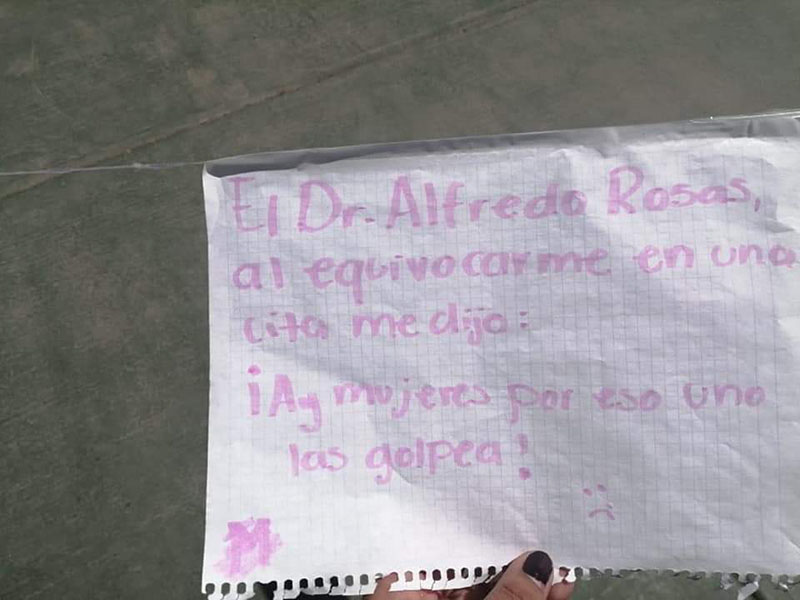 El Dr. Alfredo Rosas,
al equivocarme en una
cita me dijo:
¡Ay mujeres por eso uno
las golpea!
:(
M